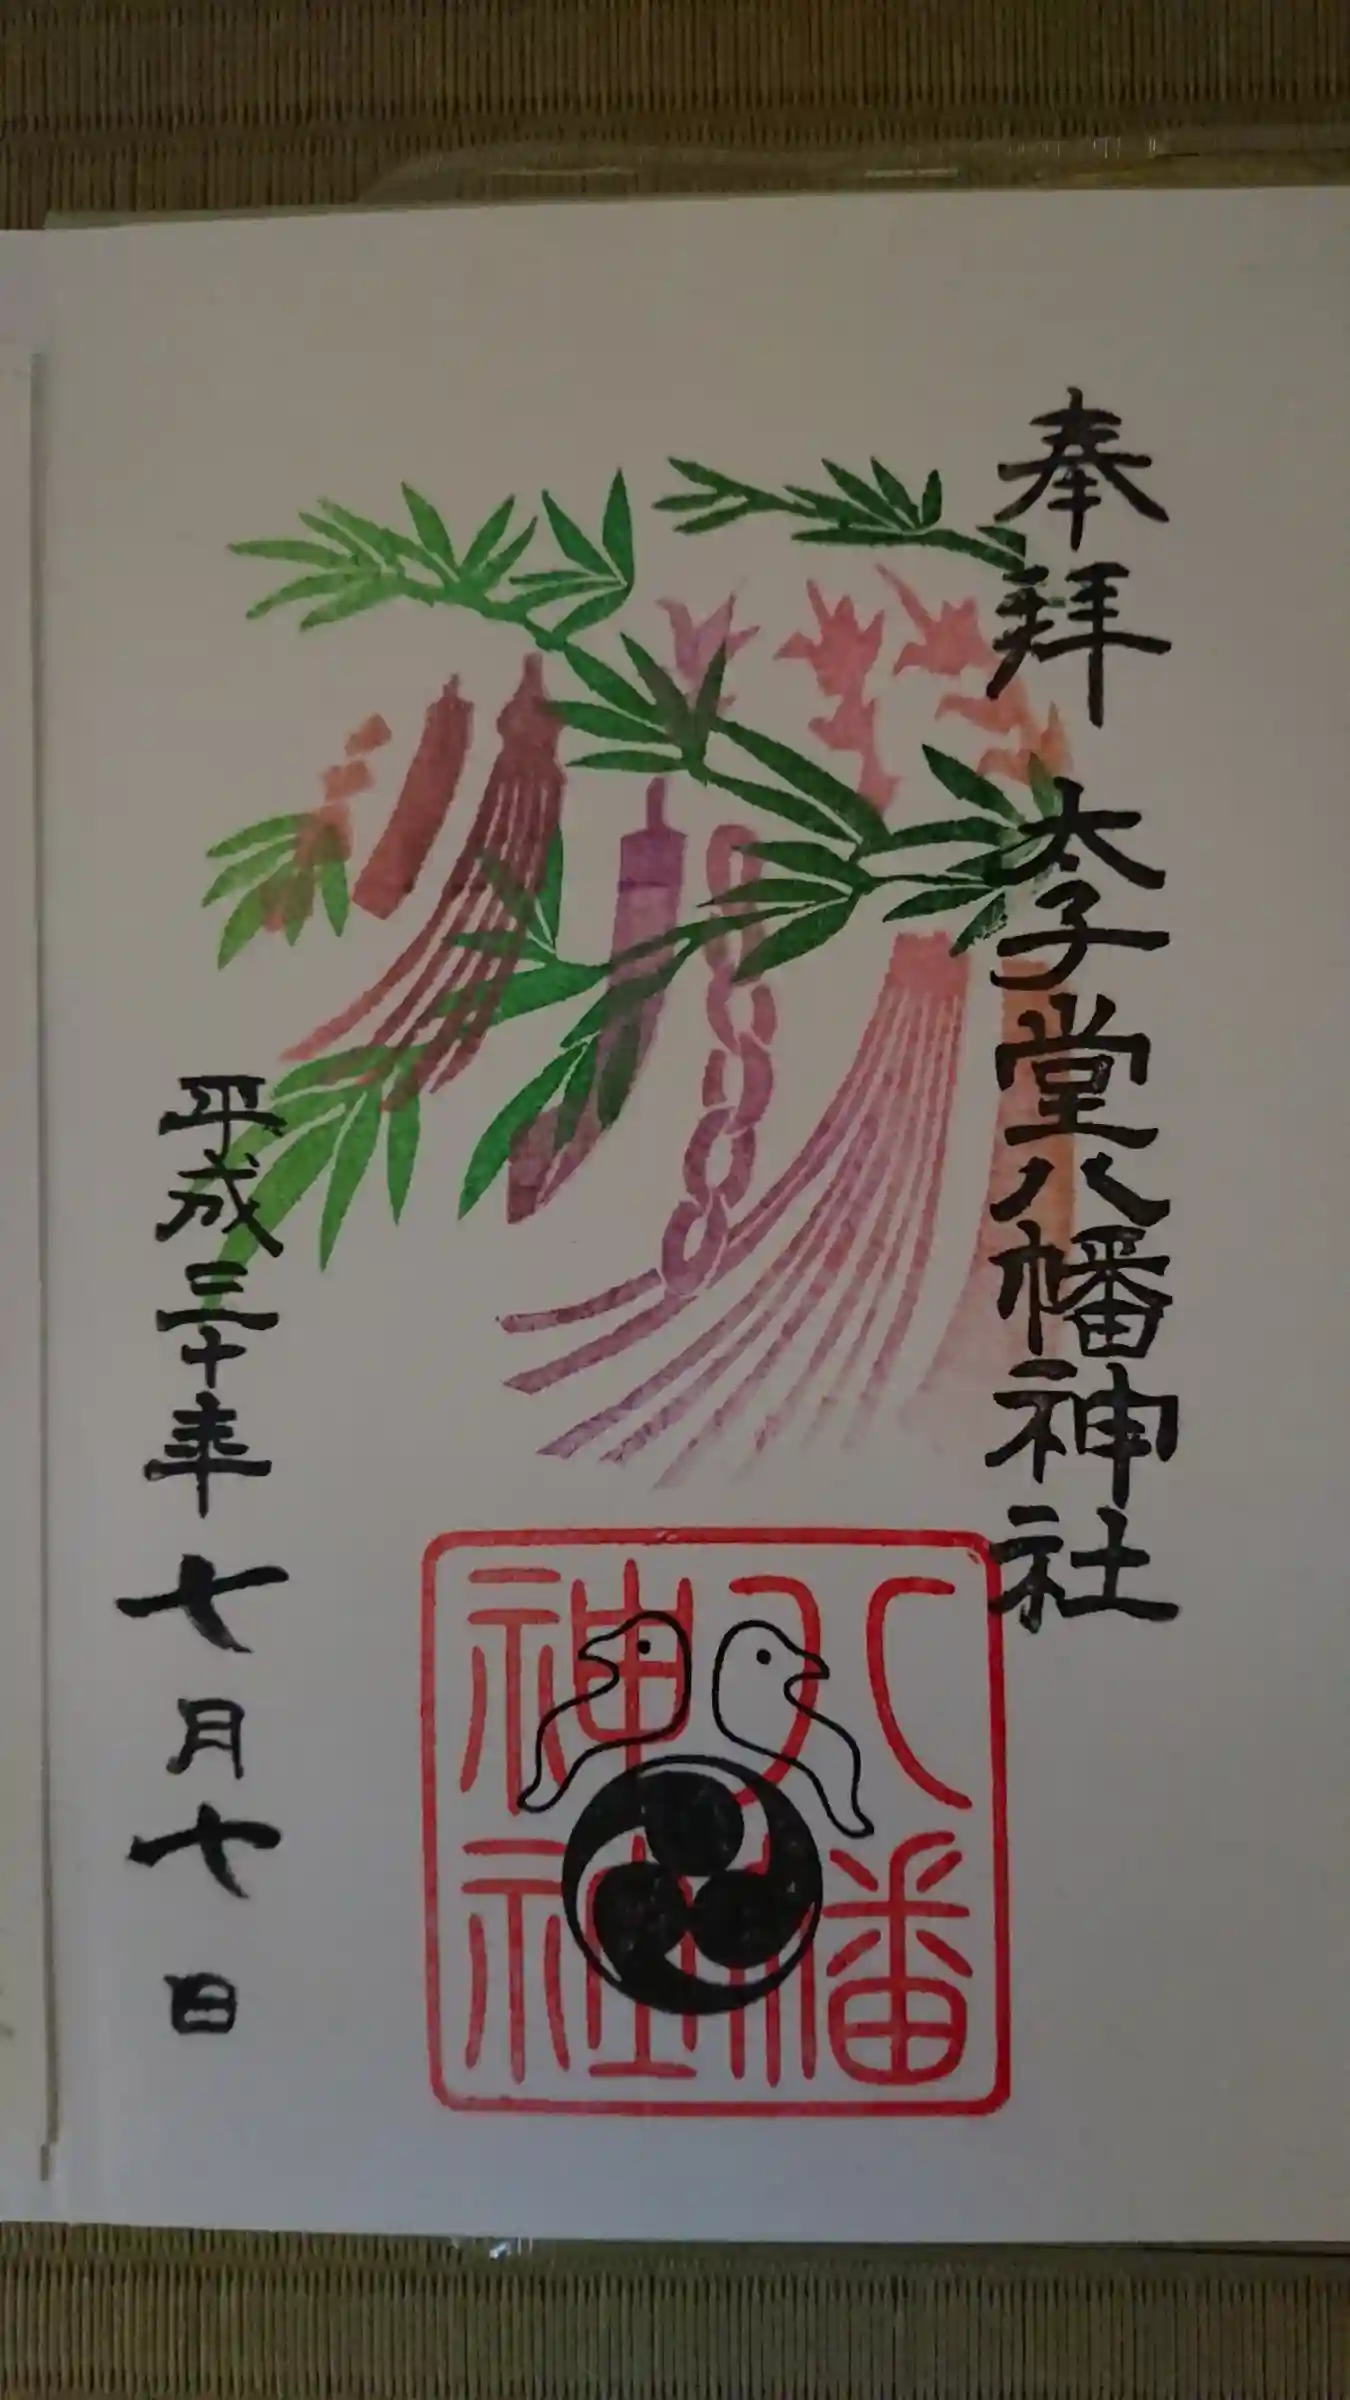 奉拝 太子堂八幡神社
八幡
神社
平成三十年 七月七日